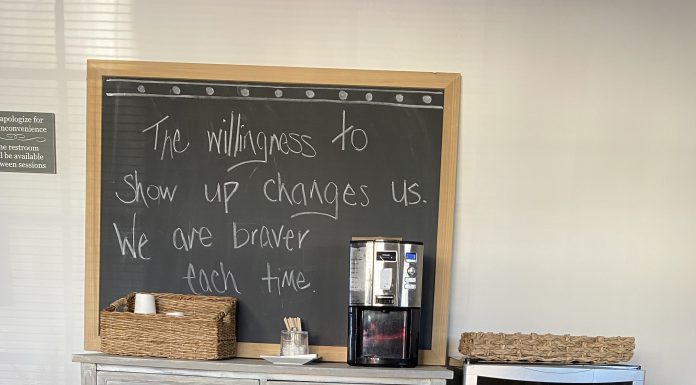 apologize for
inconvenience
restroom
be available
between sessions
The willingness to
show up changes us.
We are braver
each time.